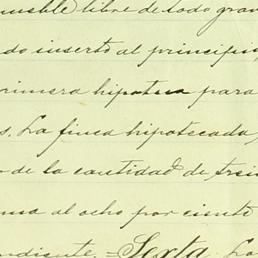 mueble libre de todo grav
do inserto al principio
primera hipoteca para
s. La finca hipotecada,
o de la cantidad de trein
una al ocho por ciento
ondiente. = Sexta. La